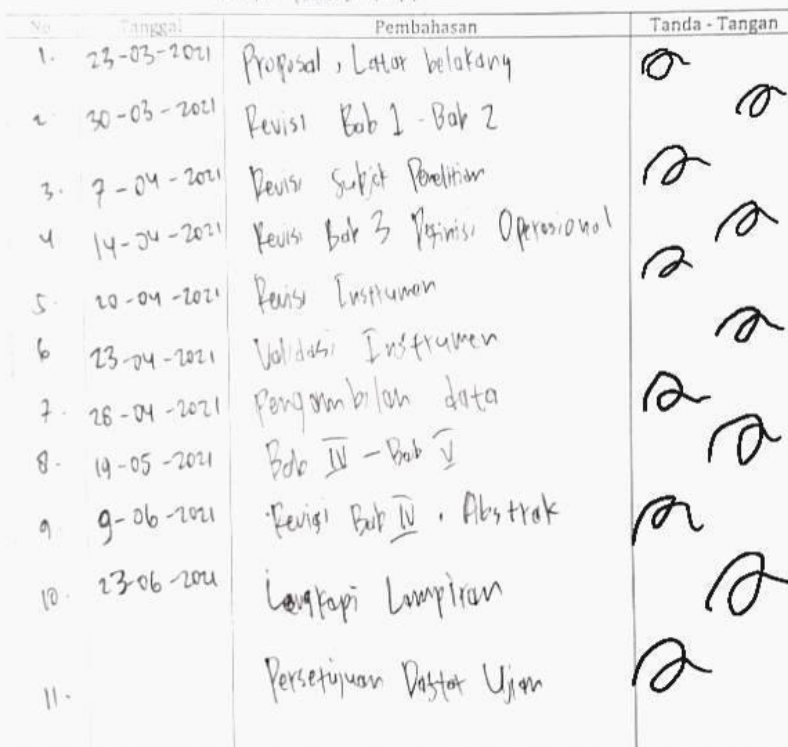 No Tanggal Pembahasan Tanda - Tangan
1. 23-03-2021 Proposal, Latar belakang
2. 30-03-2021 Revisi Bab 1 - Bab 2
3. 7-04-2021 Revisi Subjek Penelitian
4 14-04-2021 Revisi Bab 3 Definisi Operasional
5. 20-04-2021 Revisi Instrumen
6 23-04-2021 Validasi Instrumen
7. 28-04-2021 Pengambilan data
8. 19-05-2021 Bab IV - Bab V
9 9-06-2021 Revisi Bab IV, Abstrak
10. 23-06-2021 Lengkapi Lampiran
11. Persetujuan Daftar Ujian